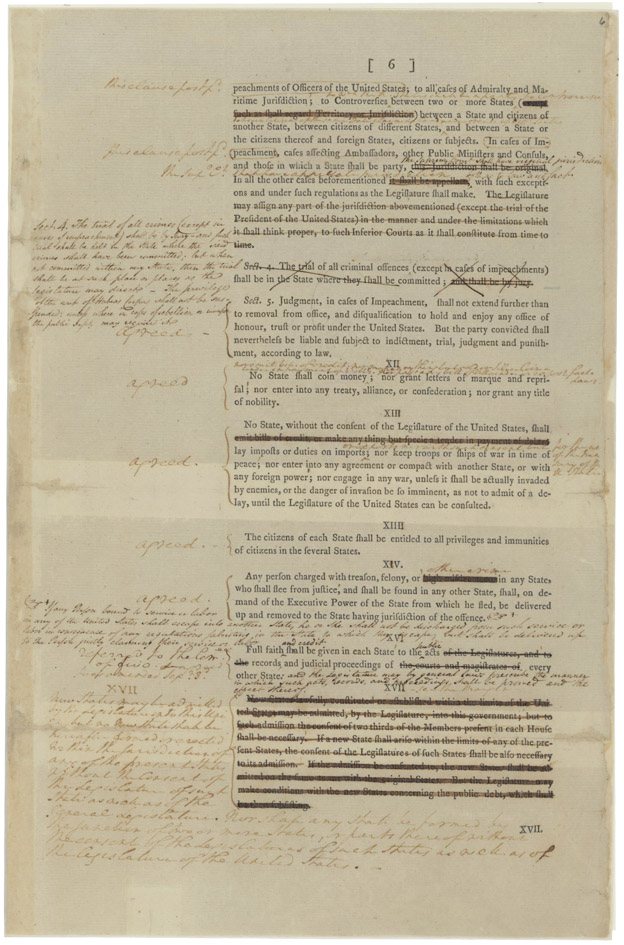 6
[ 6 ]
peachments of Officers of the United States; to all cases of Admiralty and Ma-
ritime Jurisdiction; to Controversies between two or more States (except
such as shall regard Territory or Jurisdiction) between a State and citizens of
another State, between citizens of different States, and between a State or
the citizens thereof and foreign States, citizens or subjects. In cases of Im-
peachment, cases affecting Ambassadors, other Public Ministers and Consuls,
and those in which a State shall be party, this jurisdiction shall be original.
In all the other cases beforementioned it shall be appellate, with such excepti-
ons and under such regulations as the Legislature shall make. The Legislature
may assign any part of the jurisdiction abovementioned (except the trial of the
President of the United States) in the manner and under the limitations which
it shall think proper, to such Inferior Courts as it shall constitute from time to
time.
Sect. 4. The trial of all crimes (except in
cases of impeachment) shall be by jury and such
trial shall be held in the State where the said
crimes shall have been committed; but when
not committed within any State, then the trial
shall be at such place or places as the
Legislature may direct. The privilege
of the writ of Habeas Corpus shall not be sus-
pended; unless where in cases of rebellion or invasion
the public safety may require it
Sect. 4. The trial of all criminal offences (except in cases of impeachments)
shall be in the State where they shall be committed; and shall be by jury.
agreed
Sect. 5. Judgment, in cases of Impeachment, shall not extend further than
to removal from office, and disqualification to hold and enjoy any office of
honour, trust or profit under the United States. But the party convicted shall
nevertheless be liable and subject to indictment, trial, judgment and punish-
ment, according to law.
XII
agreed
No State shall coin money; nor grant letters of marque and repri-
sal; nor enter into any treaty, alliance, or confederation; nor grant any title
of nobility.
XIII
No State, without the consent of the Legislature of the United States, shall
emit bills of credit, or make any thing but specie a tender in payment of debts
agreed.
lay imposts or duties on imports; nor keep troops or ships of war in time of
peace; nor enter into any agreement or compact with another State, or with
any foreign power; nor engage in any war, unless it shall be actually invaded
by enemies, or the danger of invasion be so imminent, as not to admit of a de-
lay, until the Legislature of the United States can be consulted.
XIIII
agreed.
The citizens of each State shall be entitled to all privileges and immunities
of citizens in the several States.
XIV.
other crime
agreed.
Any person charged with treason, felony, or high misdemeanor in any State,
who shall flee from justice, and shall be found in any other State, shall, on de-
mand of the Executive Power of the State from which he fled, be delivered
up and removed to the State having jurisdiction of the offence.
If any Person bound to service or labor
in any of the United States shall escape into another State, he or she shall not be discharged from such service or
labor in consequence of any regulations subsisting in the State to which they escape; but shall be delivered up
to the Person justly claiming their service or labor
XVI
public
Full faith shall be given in each State to the acts of the Legislatures, and to
the records and judicial proceedings of the courts and magistrates of every
other State; and the Legislature may by general laws prescribe the manner
in which such acts, records, and proceedings shall be proved and the
effect thereof.
XVII
New States lawfully constituted or established within the limits of the Uni-
ted States may be admitted, by the Legislature, into this government; but to
such admission the consent of two thirds of the Members present in each House
shall be necessary. If a new State shall arise within the limits of any of the pre-
sent States, the consent of the Legislatures of such States shall be also necessary
to its admission. If the admission be consented to, the new States shall be ad-
mitted on the same terms with the original States. But the Legislature may
make conditions with the new States concerning the public debt, which shall
be then subsisting.
XVII
New States may be admitted
by the Legislature into this Union
but no new State shall be
formed or erected
within the jurisdiction of
any of the present States
without the consent of
the Legislature of such
State as well as of the
general Legislature. Nor shall any State be formed by
the junction of two or more States, or parts thereof without
the consent of the Legislatures of such States as well as of
the Legislature of the United States.
XVII.